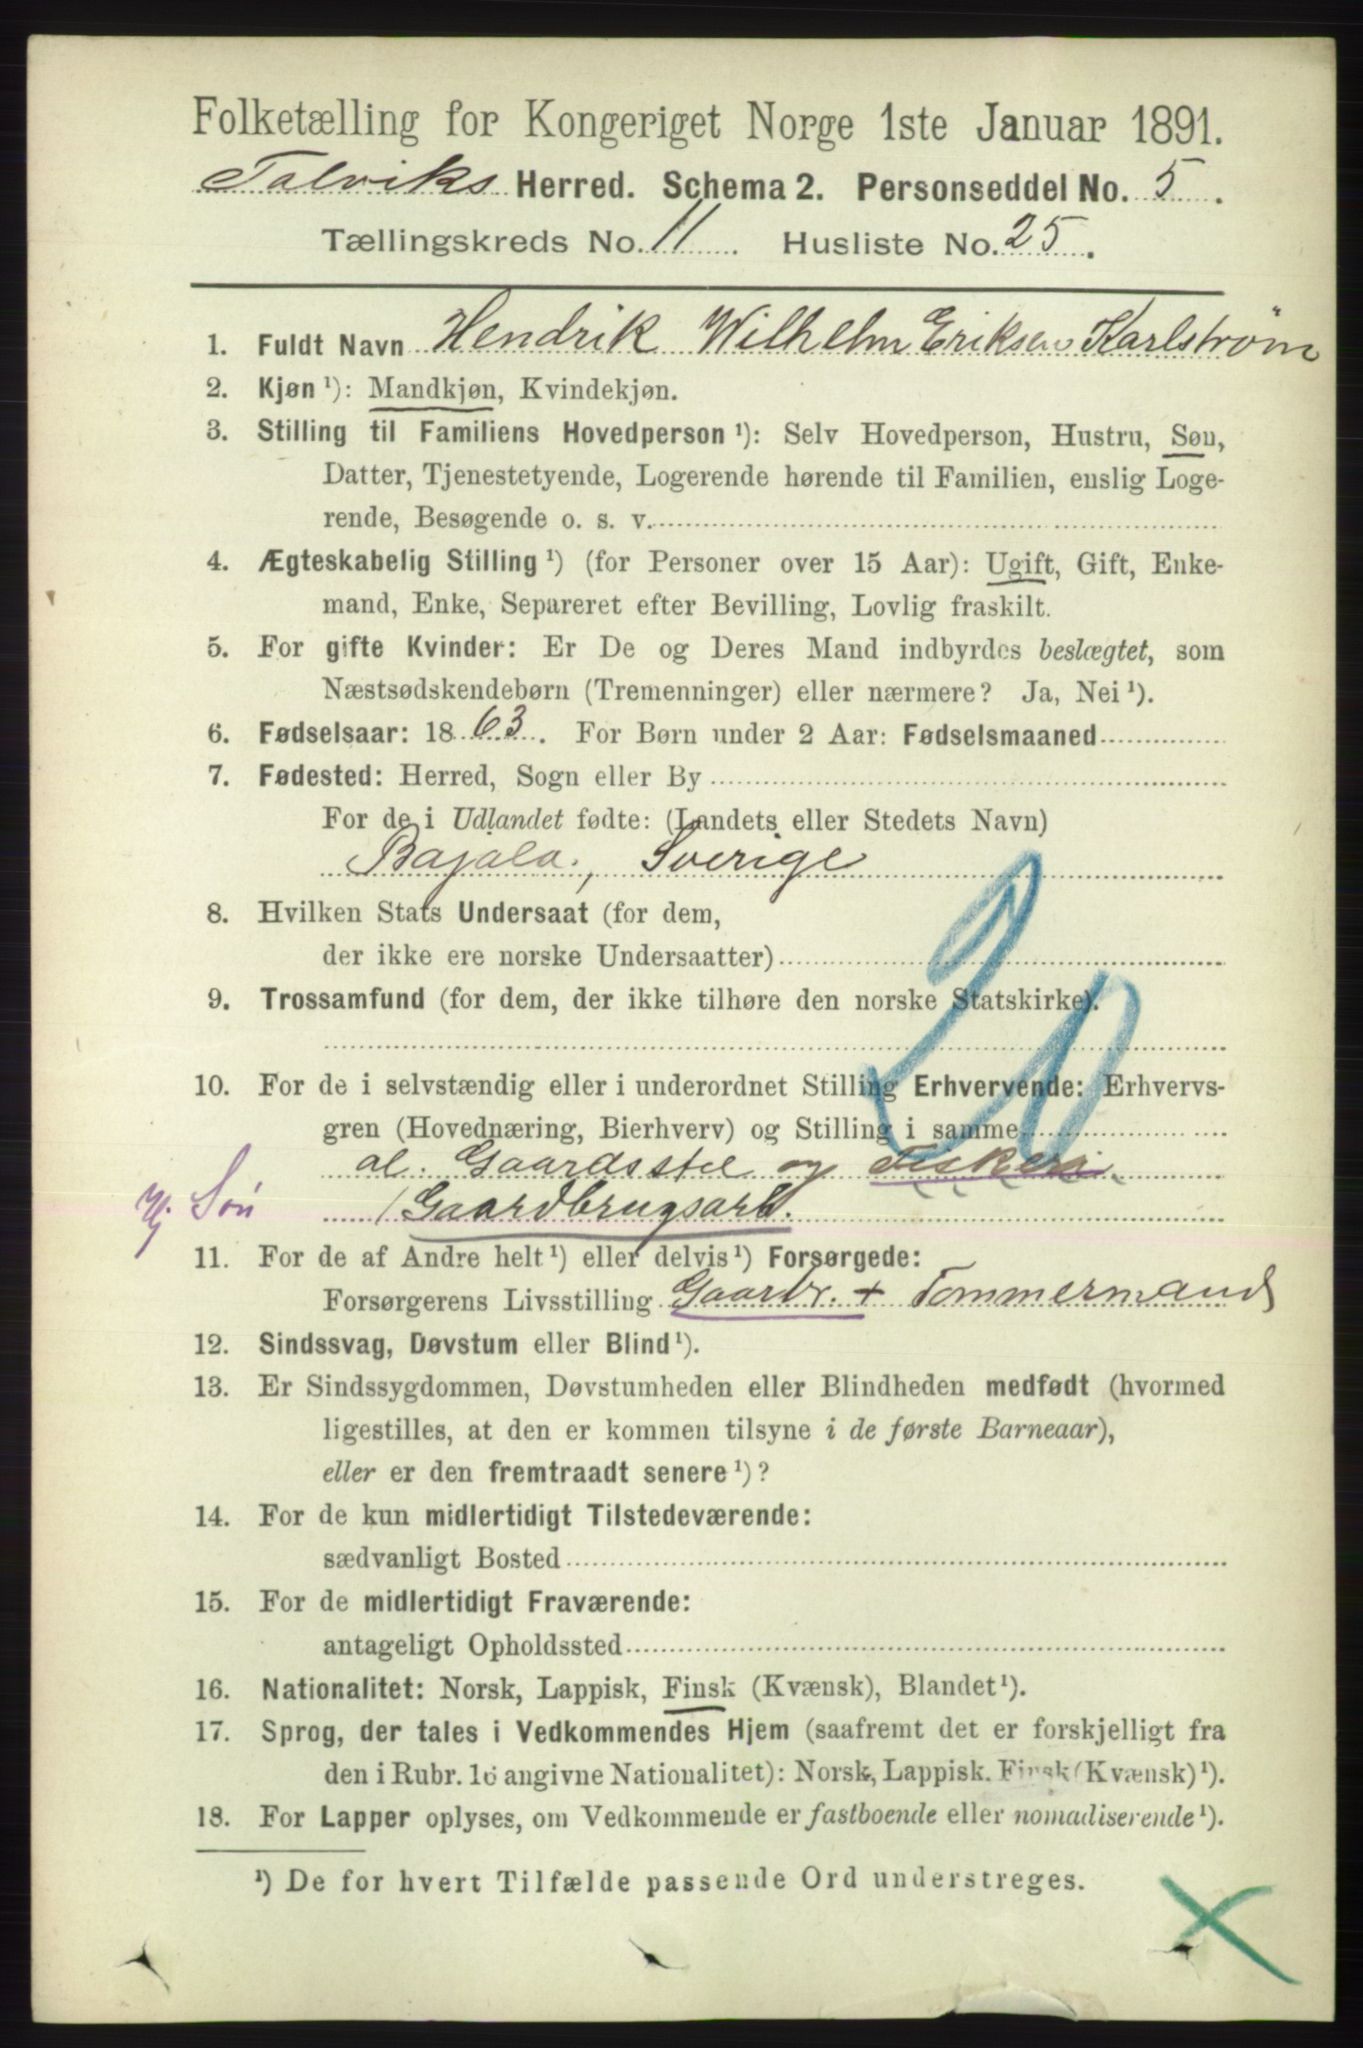 Folketælling for Kongeriget Norge 1ste Januar 1891.
Talviks Herred. Schema 2. Personseddel No. 5.
Tællingskreds No. 11. Husliste No. 25.
1. Fuldt Navn Hendrik Wilhelm Eriksen Karlstrøm
2. Kjøn ¹): Mandkjøn, Kvindekjøn.
3. Stilling til Familiens Hovedperson ¹): Selv Hovedperson, Hustru, Søn,
Datter, Tjenestetyende, Logerende hørende til Familien, enslig Loge-
rende, Besøgende o. s. v.
4. Ægteskabelig Stilling ¹) (for Personer over 15 Aar): Ugift, Gift, Enke-
mand, Enke, Separeret efter Bevilling, Lovlig fraskilt.
5. For gifte Kvinder: Er De og Deres Mand indbyrdes beslægtet, som
Næstsødskendebørn (Tremenninger) eller nærmere? Ja, Nei ¹).
6. Fødselsaar: 1863. For Børn under 2 Aar: Fødselsmaaned
7. Fødested: Herred, Sogn eller By
For de i Udlandet fødte: (Landets eller Stedets Navn)
Bajala, Sverige
8. Hvilken Stats Undersaat (for dem,
der ikke ere norske Undersaatter)
9. Trossamfund (for dem, der ikke tilhøre den norske Statskirke).
20
10. For de i selvstændig eller i underordnet Stilling Erhvervende: Erhvervs-
gren (Hovednæring, Bierhverv) og Stilling i samme
al. Gaardsstel og Fiskeri
Hj Søn / Gaardbrugsarb.
11. For de af Andre helt ¹) eller delvis ¹) Forsørgede:
Forsørgerens Livsstilling Gaardbr. + Tommermand
12. Sindssvag, Døvstum eller Blind ¹).
13. Er Sindssygdommen, Døvstumheden eller Blindheden medfødt (hvormed
ligestilles, at den er kommen tilsyne i de første Barneaar),
eller er den fremtraadt senere ¹)?
14. For de kun midlertidigt Tilstedeværende:
sædvanligt Bosted
15. For de midlertidigt Fraværende:
antageligt Opholdssted
16. Nationalitet: Norsk, Lappisk, Finsk (Kvænsk), Blandet ¹).
17. Sprog, der tales i Vedkommendes Hjem (saafremt det er forskjelligt fra
den i Rubr. 16 angivne Nationalitet): Norsk, Lappisk, Finsk (Kvænsk) ¹).
18. For Lapper oplyses, om Vedkommende er fastboende eller nomadiserende ¹).
¹) De for hvert Tilfælde passende Ord understreges.